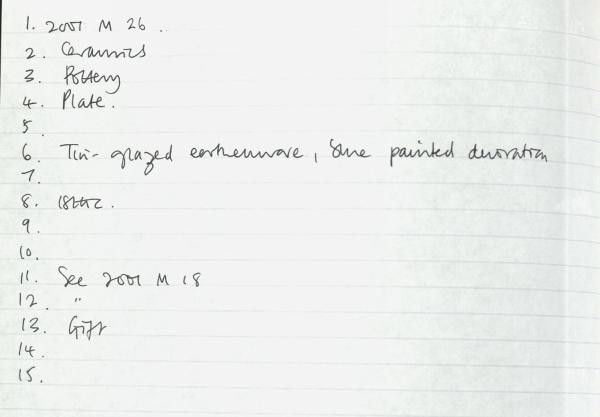 1. 2001 M 26.
2. Ceramics
3. Pottery
4. Plate.
5.
6. Tin-glazed earthenware, blue painted decoration
7.
8. 18thc.
9.
10.
11. See 2001 M 18
12. "
13. Gift
14.
15.